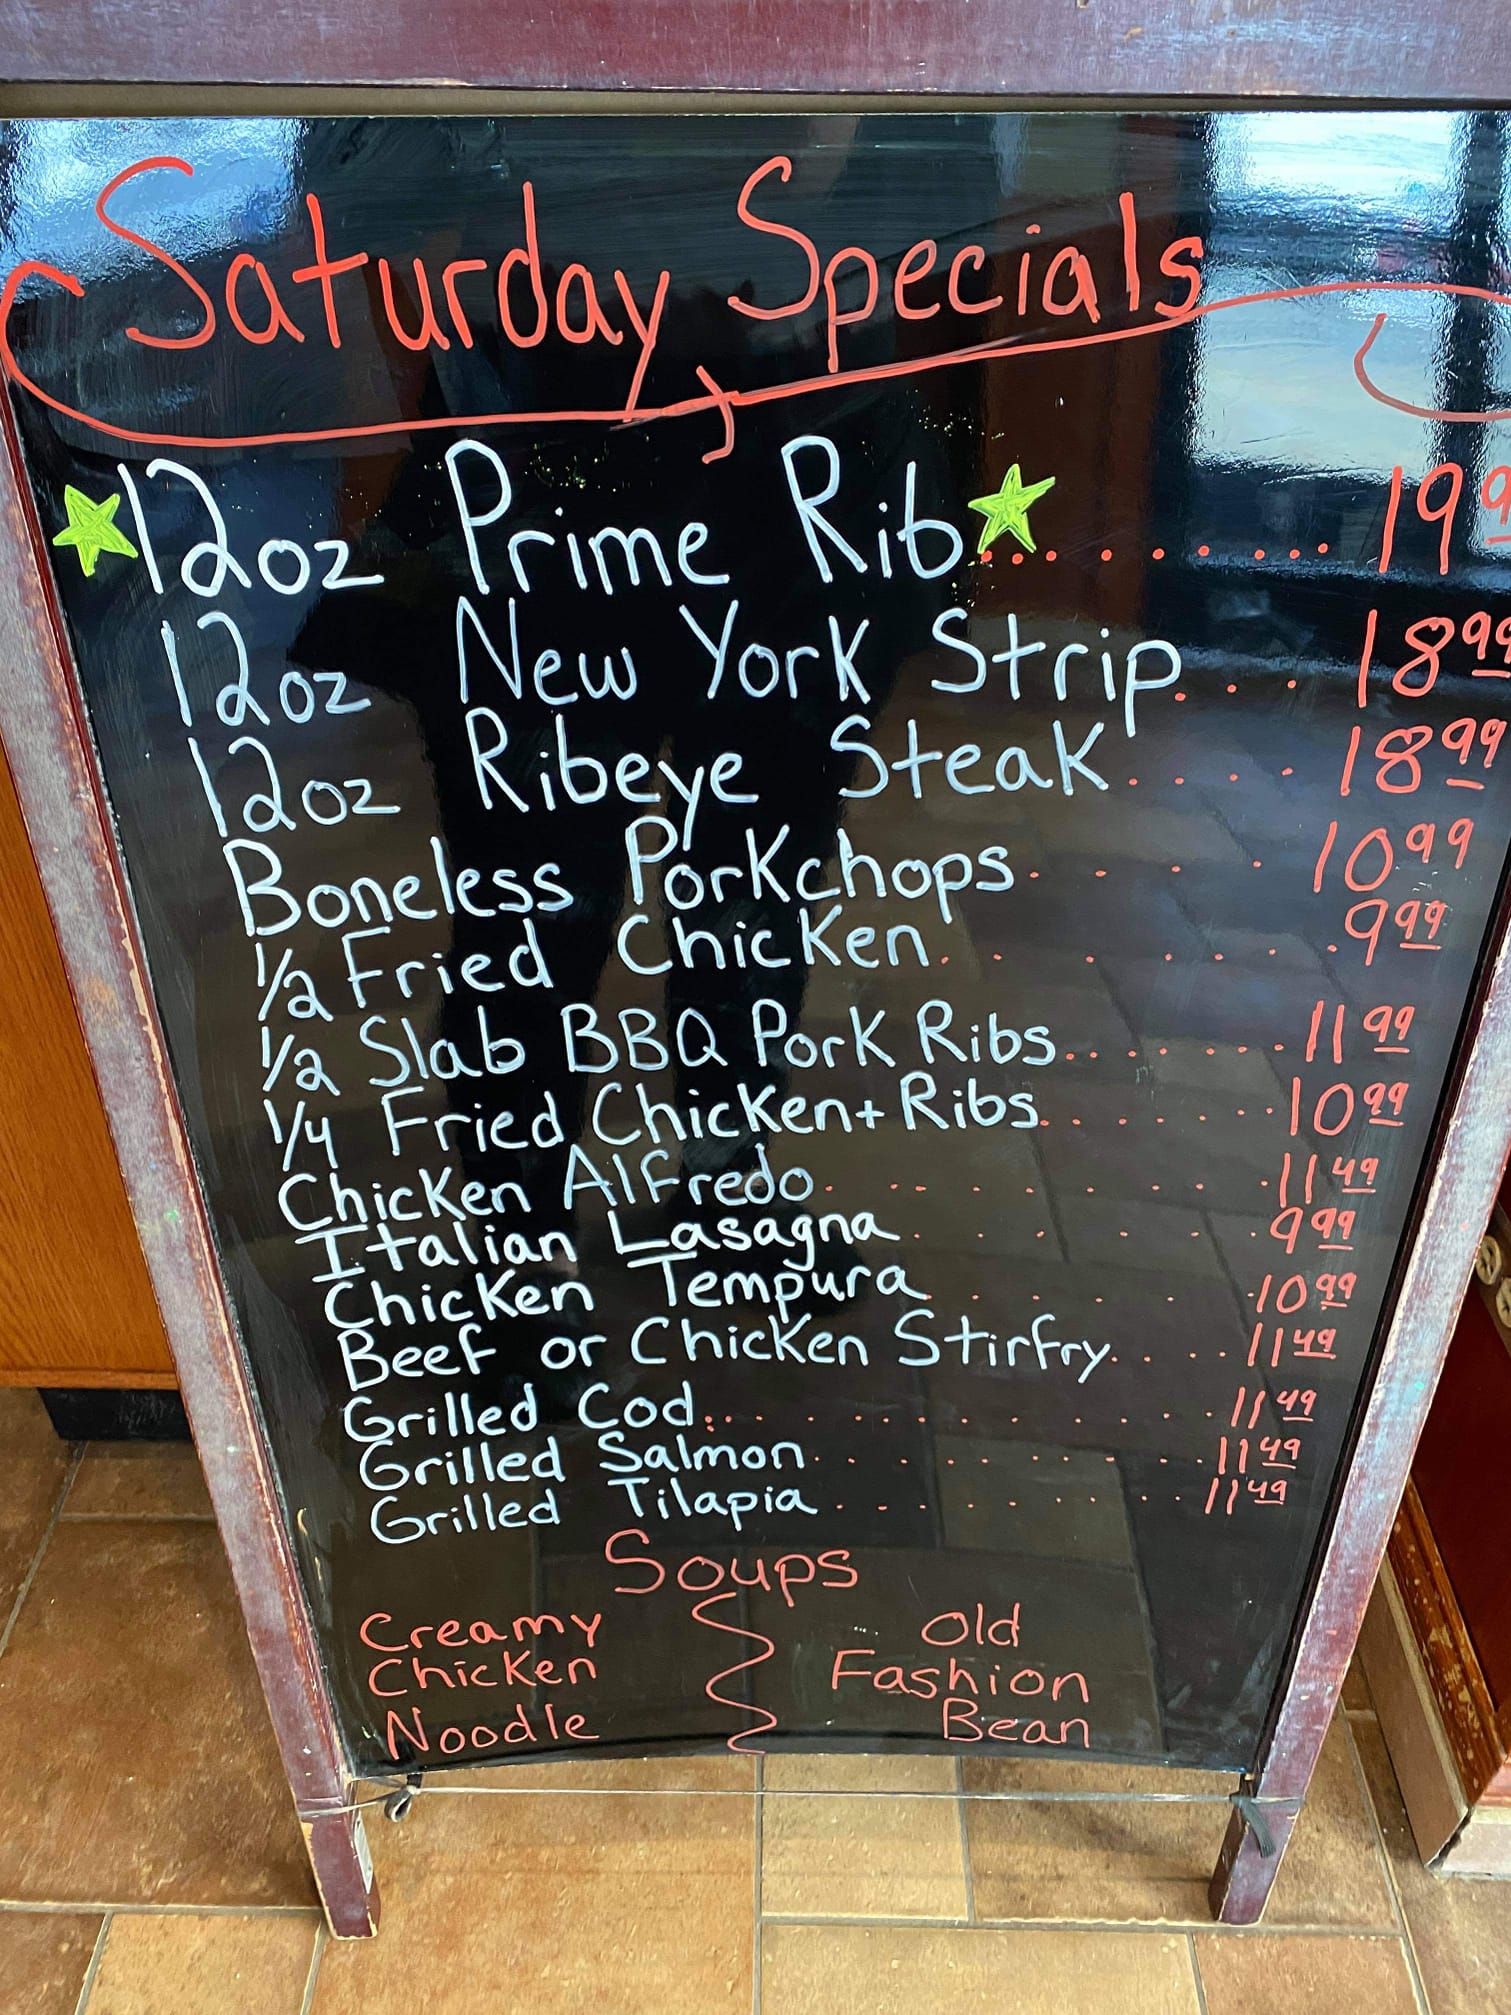 Saturday Specials
12oz Prime Rib......... 19 9
12oz New York Strip.... 18 99
12oz Ribeye Steak..... 18 99
Boneless Porkchops..... 10 99
1/2 Fried Chicken....... 9 99
1/2 Slab BBQ Pork Ribs........ 11 99
1/4 Fried Chicken + Ribs........ 10 99
Chicken Alfredo......... 11 49
Italian Lasagna........ 9 99
Chicken Tempura....... 10 99
Beef or Chicken Stirfry..... 11 49
Grilled Cod............ 11 49
Grilled Salmon.......... 11 49
Grilled Tilapia.......... 11 49
Soups
Creamy
Chicken
Noodle
Old
Fashion
Bean